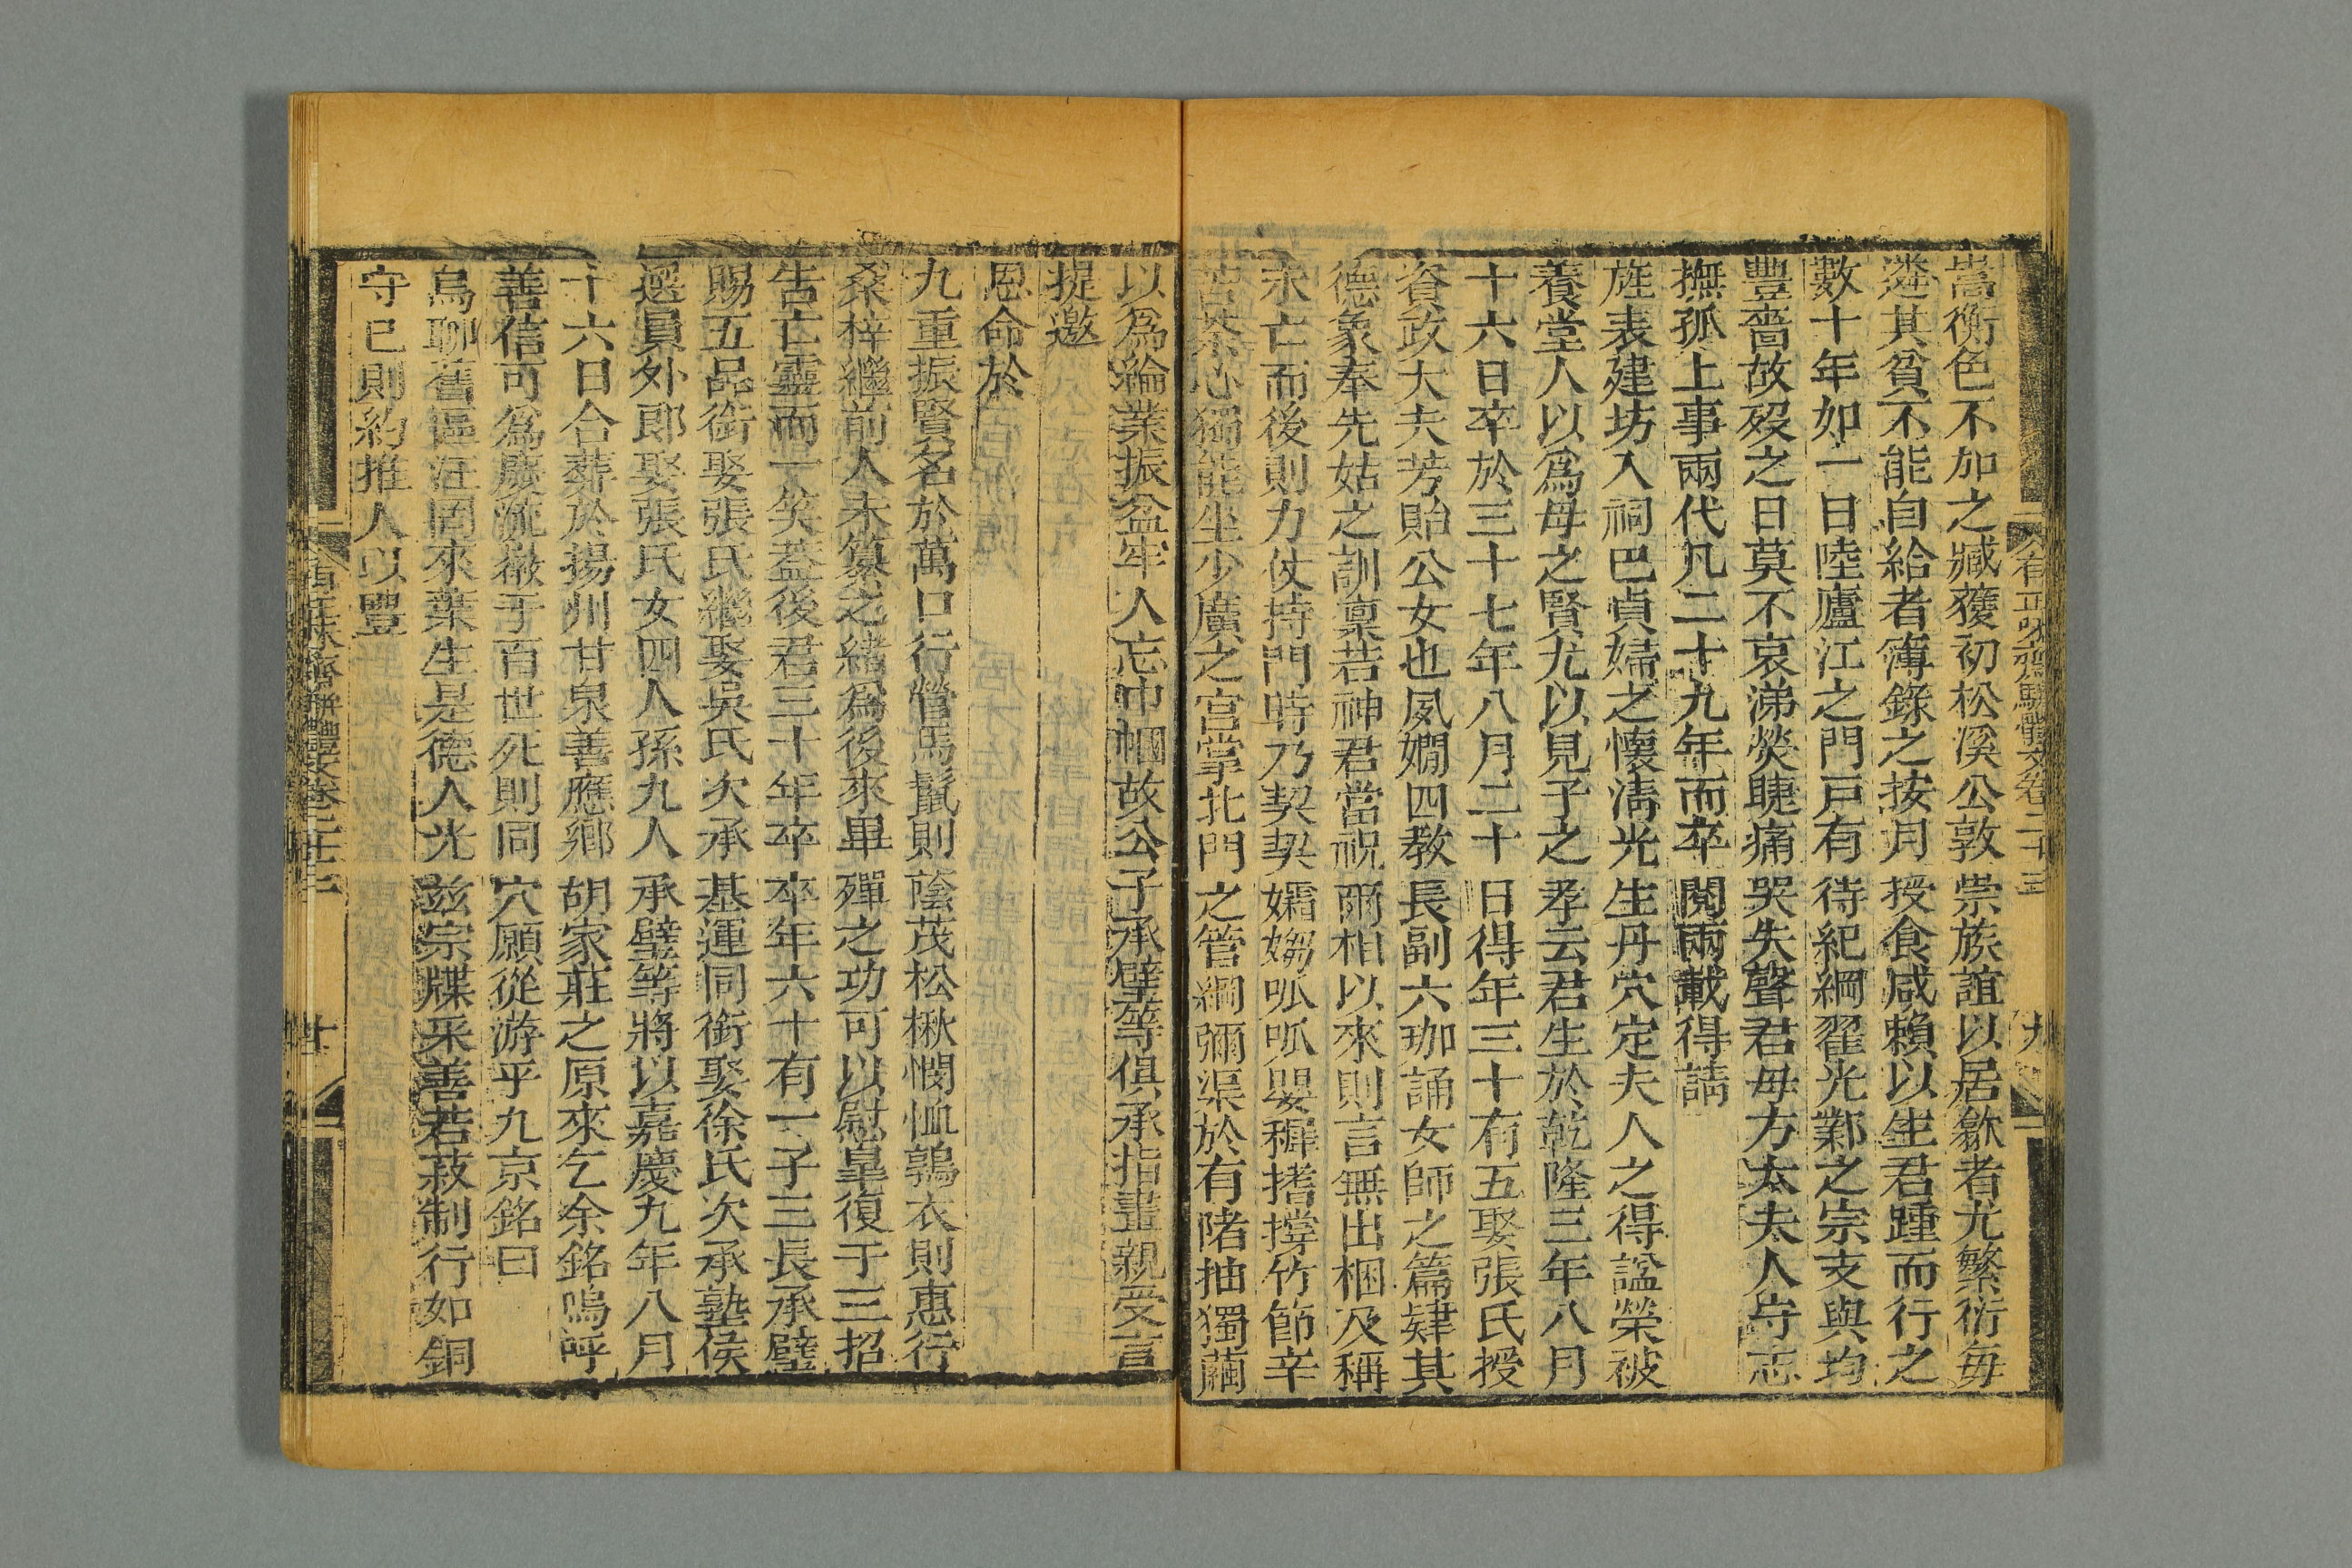 有正味齋駢體文卷二十三
九
嵩衡色不加之臧獲初松溪公敦崇族誼以居歙者尤繁衍每
遴其貧不能自給者簿錄之按月授食咸賴以生君踵而行之
數十年如一日陸廬江之門戸有待紀綱翟光鄴之宗支與均
豐嗇故歿之日莫不哀涕熒睫痛哭失聲君母方太夫人守志
撫孤上事兩代凡二十九年而卒閱兩載得請
旌表建坊入祠巴貞婦之懷淸光生丹穴定夫人之得諡榮被
養堂人以爲母之賢尤以見子之孝云君生於乾隆三年八月
十六日卒於三十七年八月二十日得年三十有五娶張氏授
資政大夫芳貽公女也夙嫺四教長副六珈誦女師之篇肄其
德象奉先姑之訓稟若神君當祝爾相以來則言無出梱及稱
未亡而後則力仗持門時乃契契孀媰呱呱嬰穉搘撐竹節辛
苦荼心獨能坐少廣之宮掌北門之管綱彌渠於有陼抽獨繭
以爲綸業振盆牢人忘巾幗故公子承璧等俱承指畫親受言
提邀
恩命於
九重振賢名於萬口行營馬鬣則蔭茂松楸憫恤鶉衣則惠行
桑梓繼前人未纂之緒爲後來畢殫之功可以慰皐復于三招
告亡靈而一笑葢後君三十年卒卒年六十有一子三長承璧
賜五品銜娶張氏繼娶吳氏次承基運同銜娶徐氏次承塾侯
選員外郎娶張氏女四人孫九人承璧等將以嘉慶九年八月
十六日合葬於揚州甘泉善應鄕胡家莊之原來乞余銘嗚呼
善信可爲廢流徽于百世死則同穴願從游乎九京銘曰
烏聊舊區汪罔來葉生是德人光茲宗牒采善若菽制行如銅
守已則約推人以豐
有正味齋駢體文卷二十三
十